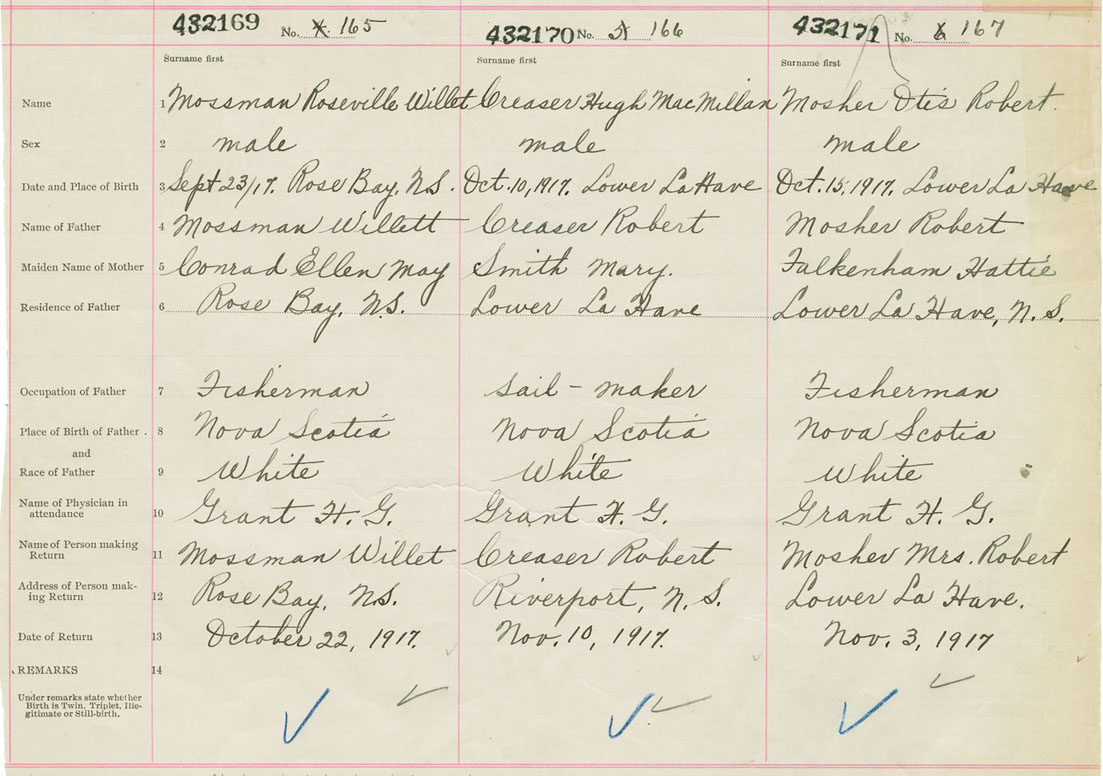 432169 No. 165 432170 No. 166 432171 No. 167
Surname first Surname first Surname first
Name 1 Mossman Roseville Willet Creaser Hugh MacMillan Mosher Otis Robert.
Sex 2 male male male
Date and Place of Birth 3 Sept 23/17. Rose Bay, N.S. Oct. 10, 1917. Lower La Have Oct. 15, 1917. Lower La Have
Name of Father 4 Mossman Willett Creaser Robert Mosher Robert
Maiden Name of Mother 5 Conrad Ellen May Smith Mary. Falkenham Hattie
Residence of Father 6 Rose Bay, N.S. Lower La Have Lower La Have, N.S.
Occupation of Father 7 Fisherman Sail - maker Fisherman
Place of Birth of Father . 8 Nova Scotia Nova Scotia Nova Scotia
and
Race of Father 9 White White White
Name of Physician in
attendance 10 Grant H. G. Grant H. G. Grant H. G.
Name of Person making
Return 11 Mossman Willet Creaser Robert Mosher Mrs. Robert
Address of Person mak-
ing Return 12 Rose Bay, N.S. Riverport, N.S. Lower La Have.
Date of Return 13 October 22, 1917. Nov. 10, 1917. Nov. 3, 1917
REMARKS 14
Under remarks state whether
Birth is Twin, Triplet, Ille-
gitimate or Still-birth.